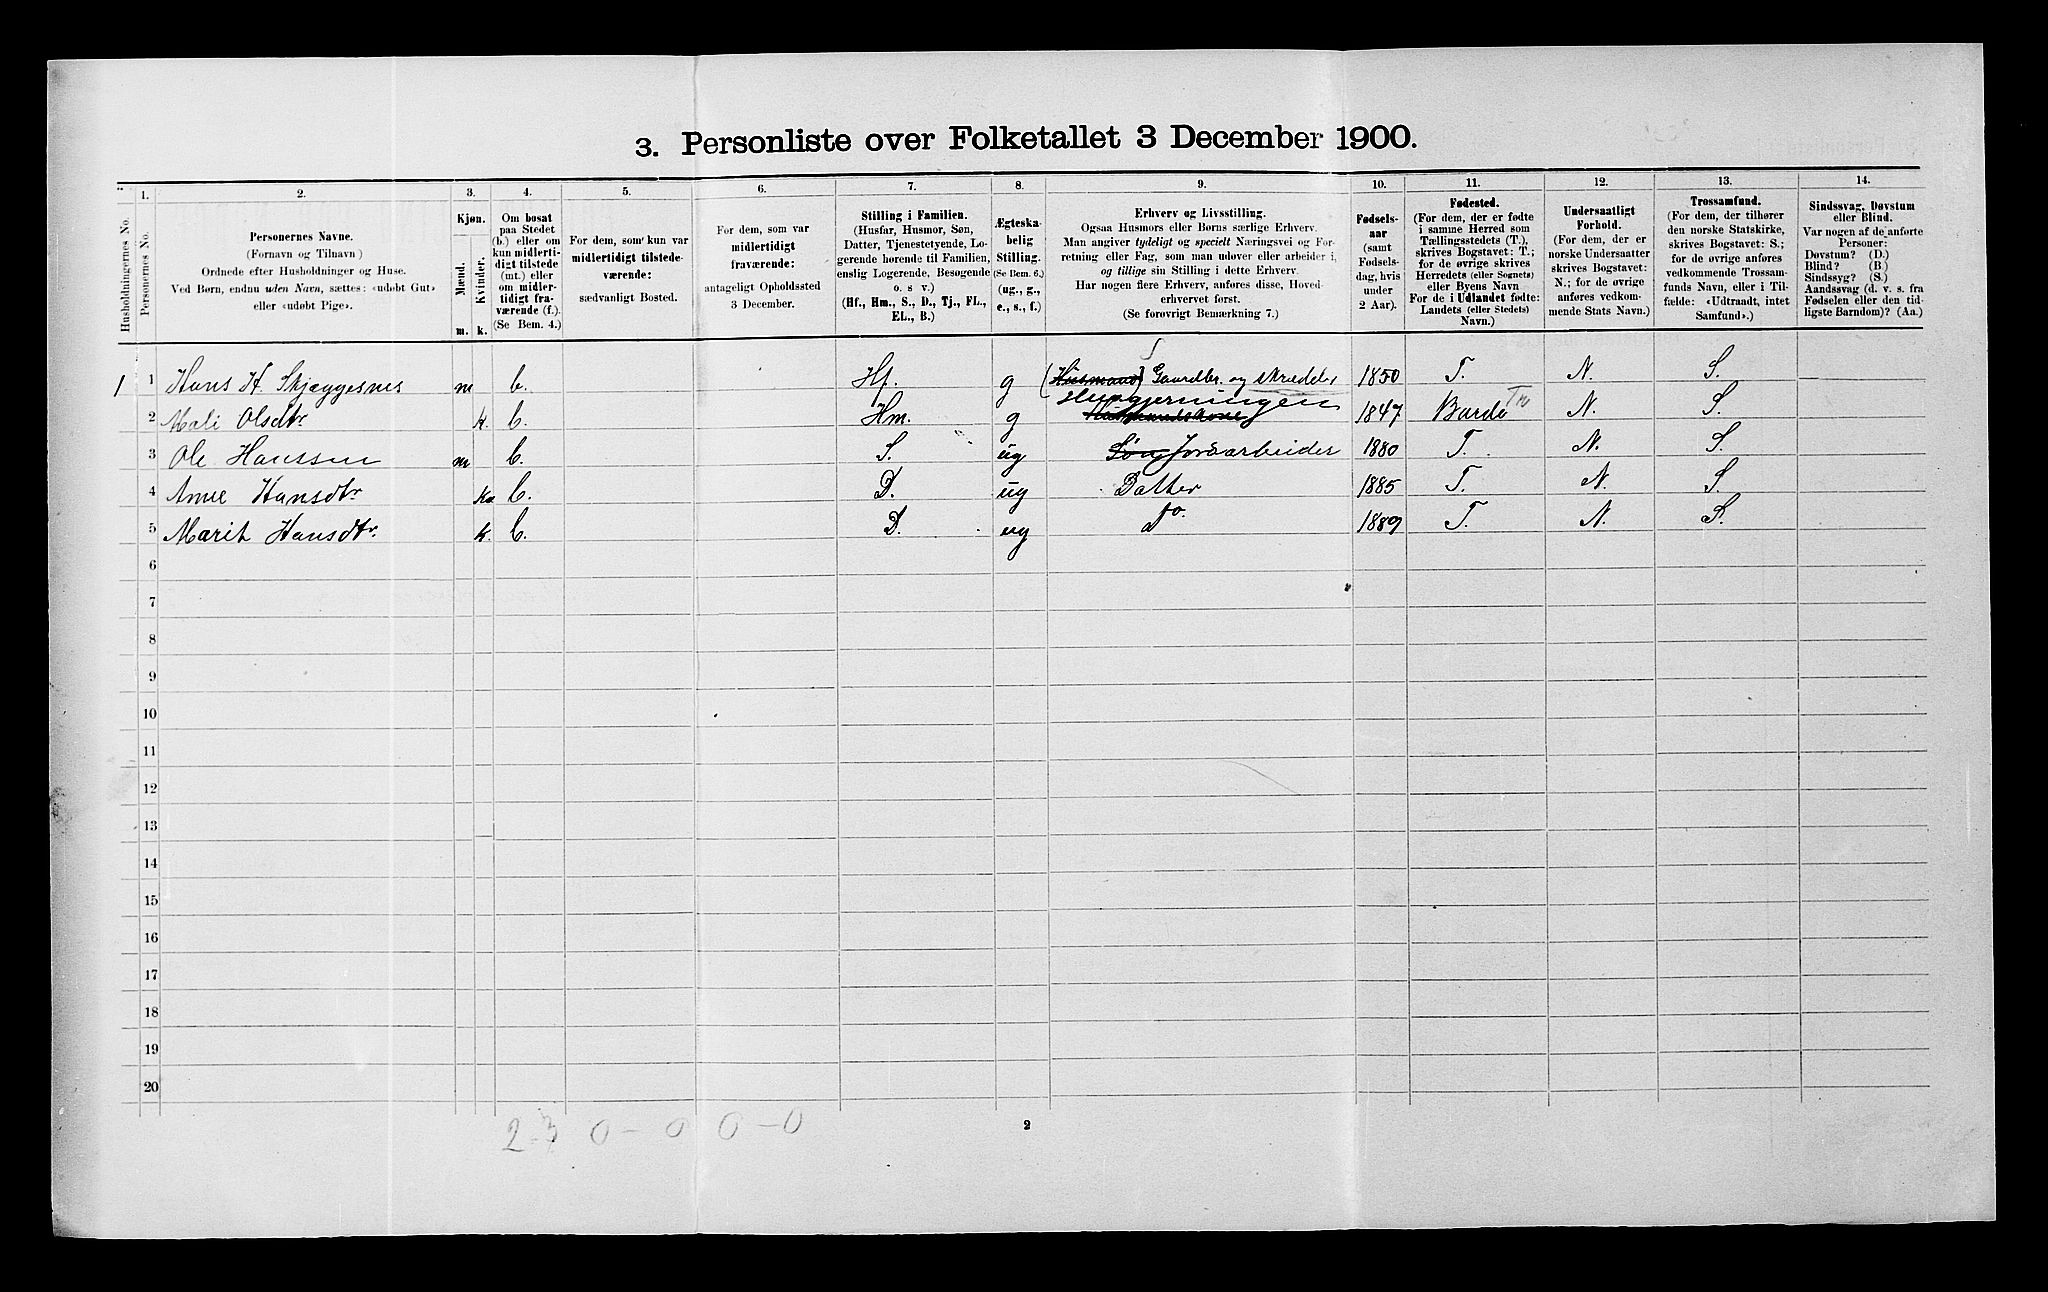 3. Personliste over Folketallet 3 December 1900.
1. 2. 3. 4. 5. 6. 7. 8. 9. 10. 11. 12. 13. 14.
Husholdningernes No.
Personernes No.
Personernes Navne.
(Fornavn og Tilnavn)
Ordnede efter Husholdninger og Huse.
Ved Børn, endnu uden Navn, sættes: «udøbt Gut»
eller «udøbt Pige».
Kjøn.
Mænd.
Kvinder.
m. k.
Om bosat
paa Stedet
(b.) eller om
kun midlerti-
digt tilstede
(mt.) eller
om midler-
tidigt fra-
værende (f.)
(Se Bem. 4.)
For dem, som kun var
midlertidigt tilstede-
værende:
sædvanligt Bosted.
For dem, som var
midlertidigt
fraværende:
antageligt Opholdssted
3 December.
Stilling i Familien.
(Husfar, Husmor, Søn,
Datter, Tjenestetyende, Lo-
gerende hørende til Familien,
enslig Logerende, Besøgende
o. s v.)
(Hf., Hm., S., D., Tj., FL.,
EL., B.)
Ægteska-
belig
Stilling.
(Se Bem. 6.)
(ug., g.,
e., s., f.)
Erhverv og Livsstilling.
Ogsaa Husmors eller Børns særlige Erhverv.
Man angiver tydeligt og specielt Næringsvei og For-
retning eller Fag, som man udøver eller arbeider i,
og tillige sin Stilling i dette Erhverv.
Har nogen flere Erhverv, anføres disse, Hoved-
erhvervet først.
(Se forøvrigt Bemærkning 7.)
Fødsels-
aar
(samt
Fødsels-
dag, hvis
under
2 Aar).
Fødested.
(For dem, der er fødte
i samme Herred som
Tællingsstedets (T.),
skrives Bogstavet: T.;
for de øvrige skrives
Herredets (eller Sognets)
eller Byens Navn
For de i Udlandet fødte:
Landets (eller Stedets)
Navn.)
Undersaatligt
Forhold.
(For dem, der er
norske Undersaatter
skrives Bogstavet:
N.; for de øvrige
anføres vedkom-
mende Stats Navn.)
Trossamfund.
(For dem, der tilhører
den norske Statskirke,
skrives Bogstavet: S.;
for de øvrige anføres
vedkommende Trossam-
funds Navn, eller i Til-
fælde: «Udtraadt, intet
Samfund».)
Sindssvag, Døvstum
eller Blind.
Var nogen af de anførte
Personer:
Døvstum? (D.)
Blind? (B.)
Sindssyg? (S.)
Aandssvag (d. v. s. fra
Fødselen eller den tid-
ligste Barndom)? (Aa.)
1 1 Hans H. Skjæggesnes m b. Hf. g (Husmand) Gaardbr. og skrædder 1850 T. N. S.
2 Mali Olsdtr k. b. Hm. g Husgjerningen 1847 Bardo Tr N. S.
3 Ole Hanssen m b. S. ug Søn Jordarbeider 1880 T. N. S.
4 Anne Hansdtr k b. D. ug Datter 1885 T. N. S.
5 Marit Hansdtr. k. b. D. ug Do. 1889 T. N. S.
6
7
8
9
10
11
12
13
14
15
16
17
18
19
20
2-3 0-0 0-0
2